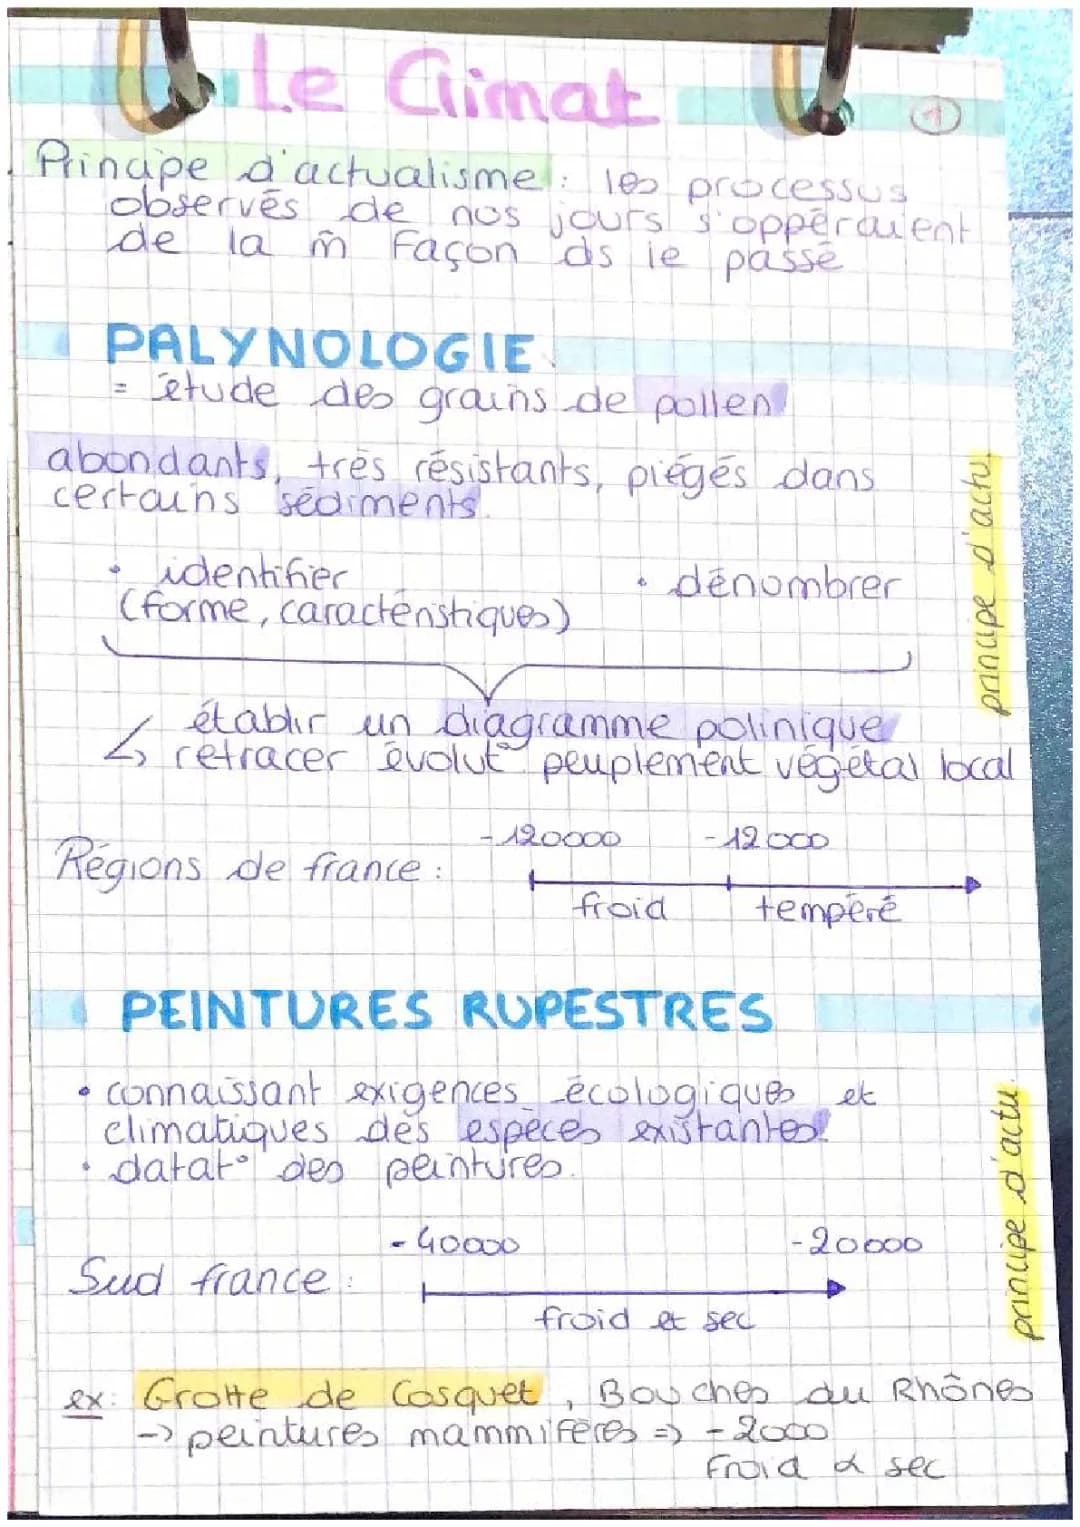 Le Climat
1
Principe d'actualisme : les processus
observés de nos jours s'oppéraient
de la m̂ façon ds le passé
PALYNOLOGIE
= étude des grains de pollen
abondants, très résistants, piégés dans
certains sédiments.
• identifier
• dénombrer
(forme, caractéristiques)
principe d'actu.
établir un diagramme polinique
↳ retracer évolut° peuplement végétal local
-120000 -12000
Régions de france :
froid tempéré
PEINTURES RUPESTRES
• connaissant exigences écologiques et
climatiques des espèces existantes.
• datat° des peintures.
principe d'actu.
-40000 -20000
Sud france :
froid et sec
ex: Grotte de Cosquet, Bouches du Rhônes
-> peintures mammifères => -2000
Froid & sec